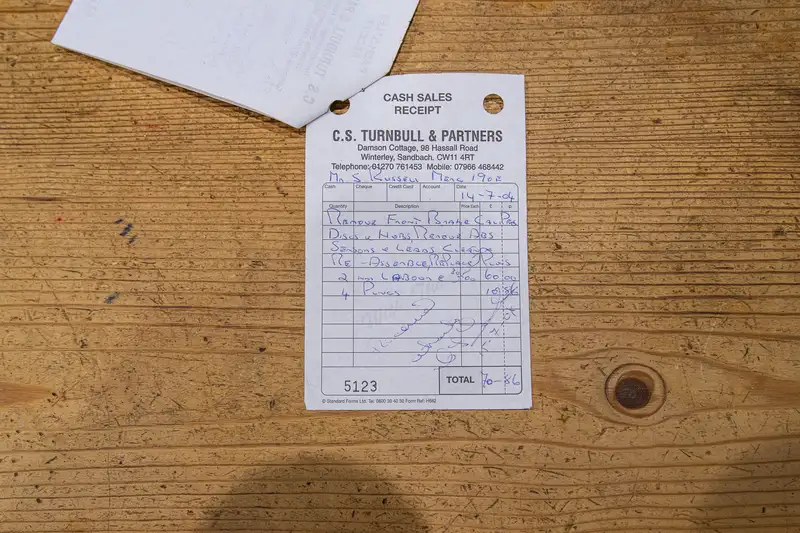 CASH SALES
RECEIPT
C.S. TURNBULL & PARTNERS
Damson Cottage, 98 Hassall Road
Winterley, Sandbach. CW11 4RT
Telephone: 01270 761453 Mobile: 07966 468442
Mr S Russell Merc 190E
Cash Cheque Credit Card Account Date
14-7-04
Quantity Description Price Each £ p
Remove Front Brake Caliper
Discs & Hubs Remove ABS
Sensors & Leads Clean &
Re-Assemble, Replace Plugs
2 Labour 60 00
4 Plugs 10 86
5123 TOTAL 70-86
© Standard Forms Ltd. Tel: 0800 39 40 30 Form Ref: